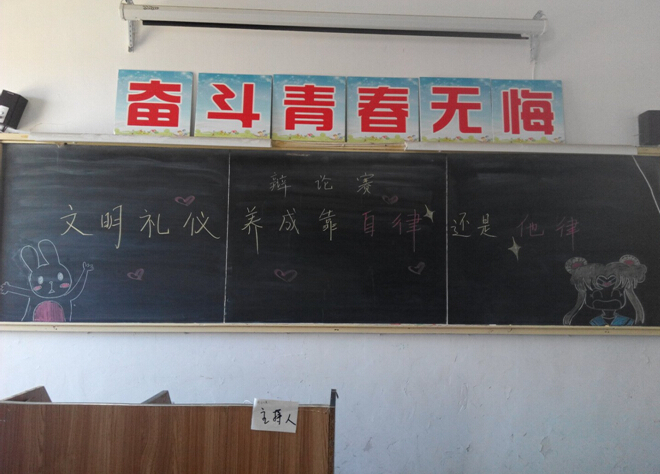 奋斗青春无悔
辩论赛
文明礼仪养成靠自律还是他律
主持人